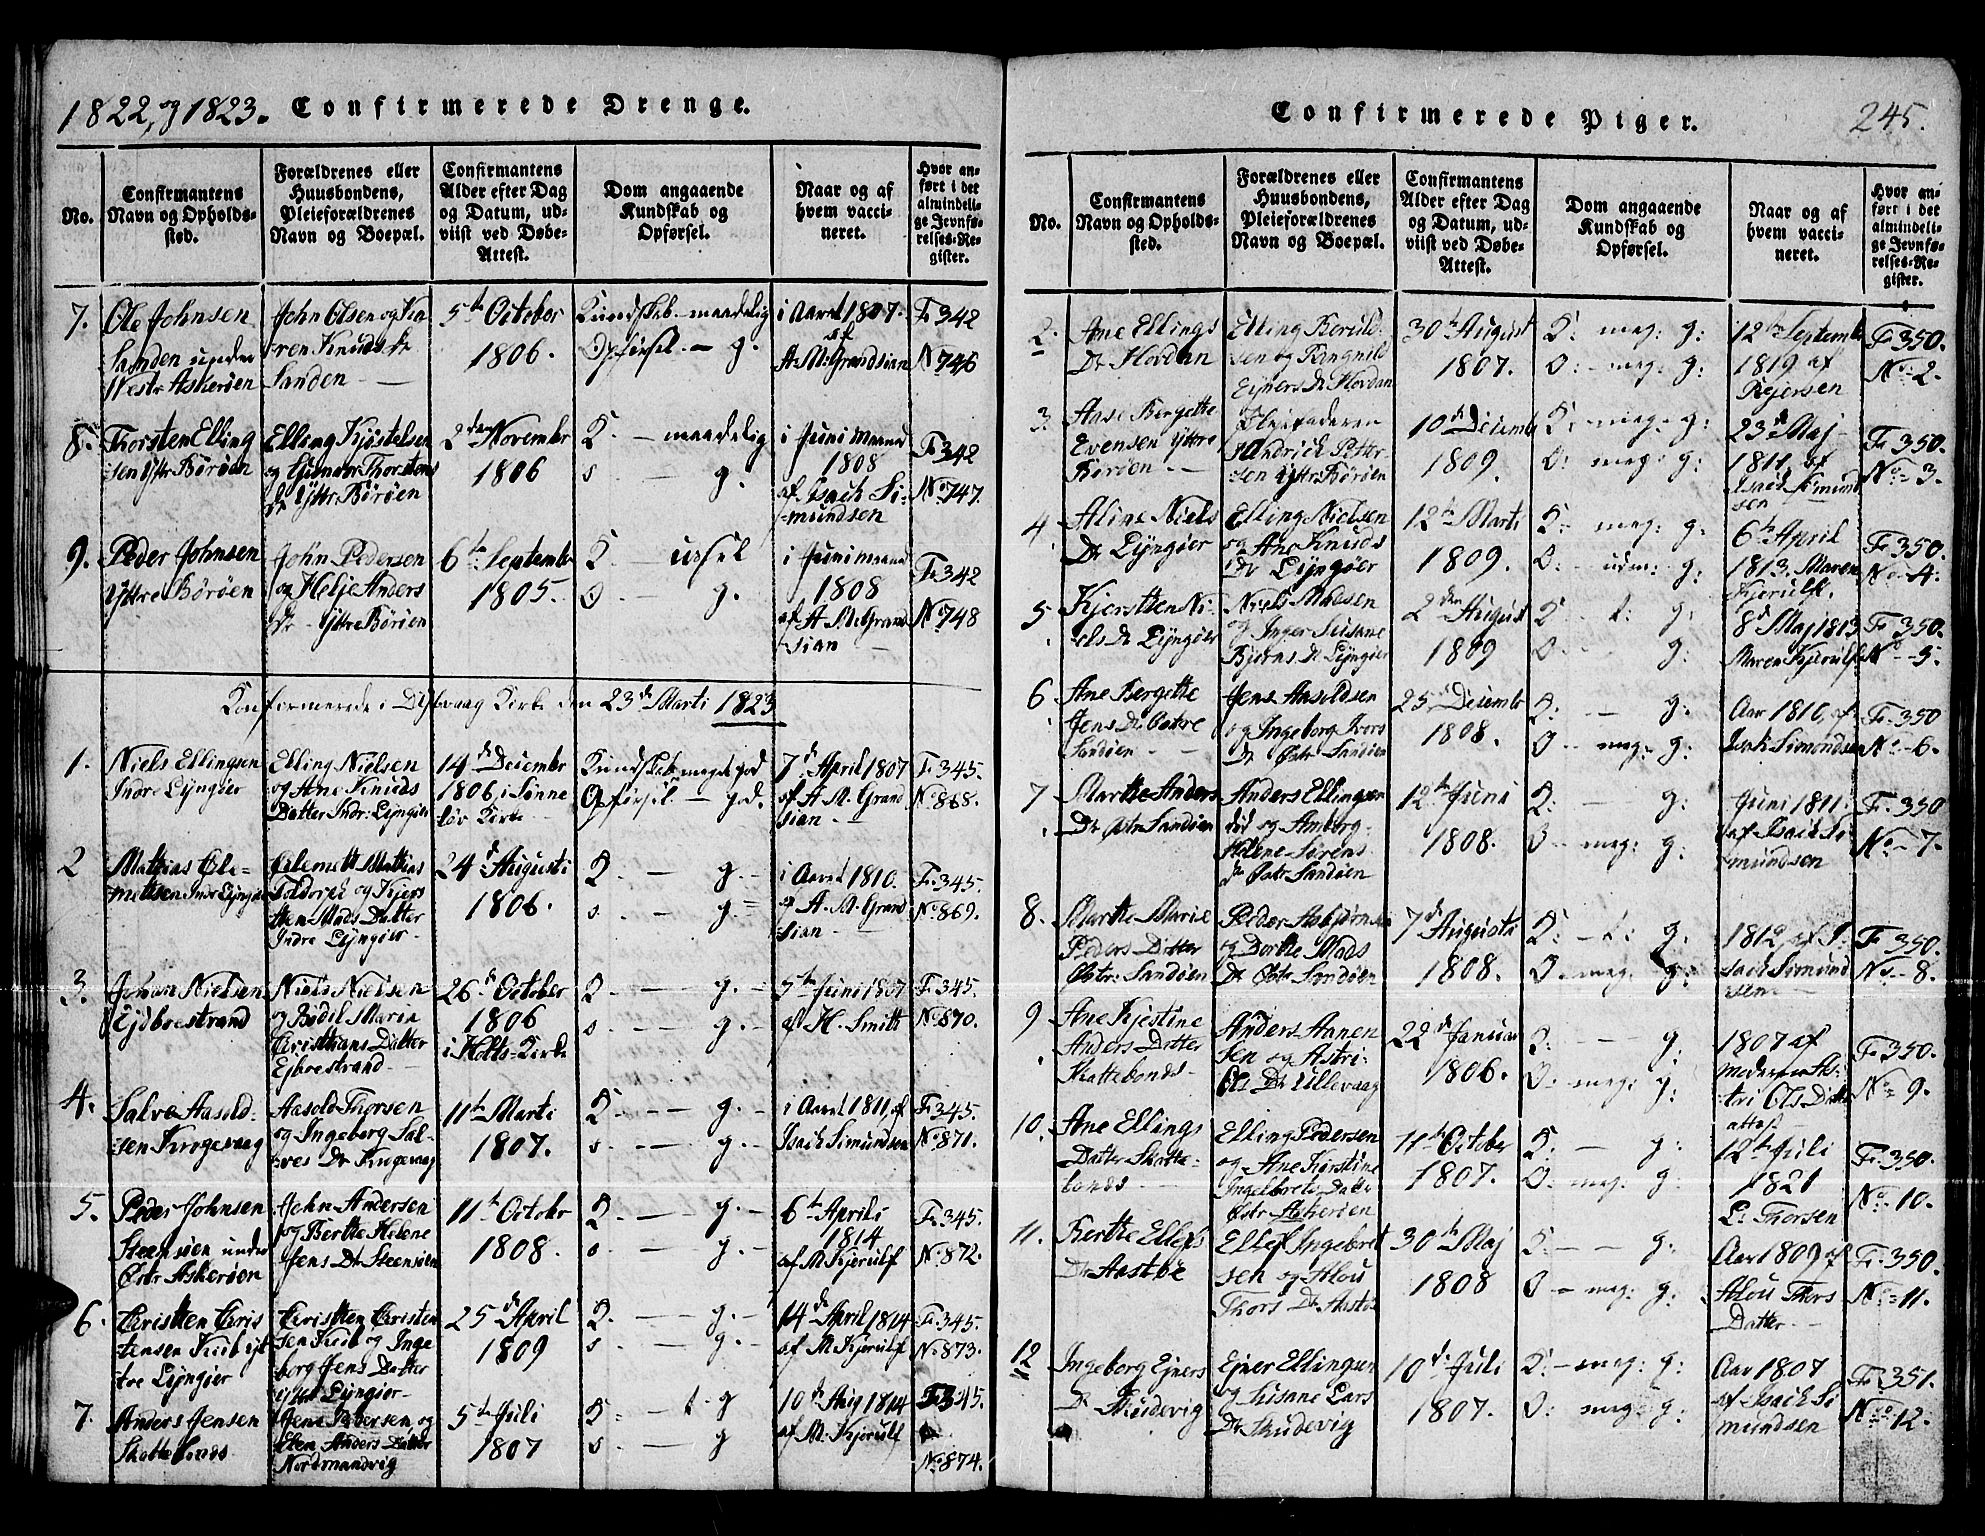 1822, og 1823. Confirmerede Drenge.
No.
Confirmantens
Navn og Opholds-
sted.
Forældrenes eller
Huusbondens,
Pleieforældrenes
Navn og Boepæl.
Confirmantens
Alder efter Dag
og Datum, ud-
viist ved Døbe-
Attest.
Dom angaaende
Kundskab og
Opførsel.
Naar og af
hvem vacci-
neret.
Hvor an-
ført i det
almindeli-
ge Jevnfø-
relses-Re-
gister.
7.
Ole Johnsen
Sanden under
Westr Askerøen
John Olsen og Ka
ren Knuds Dr
Sanden
5th October
1806.
Kundskab - maadelig
Opførsel - g.
i Aaret 1807.
af
A. M. Grandsian
F. 342
No 746
8.
Thorsten Elling
sen Yttr Børøen
Elling Kjøstelsen
og Gunor Thorstens
Dr Yttr Børøen
2den Novembr
1806
K. - maadelig
s - g.
i Juni Maaned
1808
af Isach Si-
mundsen
F. 342
No 747.
9.
Peder Johnsen
Yttre Børøen
John Pedersen
og Helje Anders
Dr Yttre Børøen
6th Septembr
1805.
K. ussel
O - g.
i Juni Maaned
1808
af A. M. Grand
sian
F. 342
No 748
Konfirmerede i Dypvaag Kirke den 23d Marti 1823
1.
Niels Ellingsen
Indre Lyngøer
Elling Nielsen
og Ane Knuds
Datter Indr: Lyngøer
14d Decembr
1806 i Sønne
løv Kirke
Kundskab meget god
Opførsel - god.
7d April 1807
af A. M. Grand
sian
F. 345.
No 868.
2
Mathias Cle-
mettsen Indr Lyngøer
Clemett Mathias
og Kjers
tten Mads Datter
Indre Lyngøer
24d Augusti
1806.
K - g.
s. - g.
i Aaret 1810.
af A. M. Grand
sian
F. 345.
No 869.
3.
Johan Nielsen
Eydboestrand
Niels Nielsen
og Bodil Maria
Christians Datter
Ejboestrand
26d October
1806
i Holts Kirke
K - g.
s. - g.
5th Juni 1807
af H. Smith
F. 345.
No 870.
4.
Salve Aasold-
sen Krogevaag
Aasold Thorsen
og Ingeborg Sal-
ves Dr Krogevaag
11th Marti
1807.
K - g.
s. - g.
i Aaret 1811, af
Isach Simundsen
F. 345.
No 871.
5.
Peder Johnsen
Steensøen under
Østr Askerøen
John Andersen
og Berthe Helene
Jens Dr Steensøen
11th Octobr
1808.
K. - g.
s. - g.
6th Aprili
1814
af M. Kjerulf
F. 345.
No 872.
6.
Christen Chris
tensen Krib Yt
tre Lyngøer
Christen Christen
sen Krib og Inge
borg Jens Datter
Yttre Lyngøer
25d April
1809
K. - g.
s. - g.
14d April 1814
af M. Kjerulf
F. 345.
No 873.
7.
Anders Jensen
Skottebonds
Jens Pedersen og
Elen Anders Datter
Nordmandvig
5th Juli
1807
K - t. g
s. - g
10d Aug 1814
af M. Kjerulf
F. 345.
No 874.
Confirmerede Piger. 245.
No.
Confirmantens
Navn og Opholds-
sted.
Forældrenes eller
Huusbondens,
Pleieforældrenes
Navn og Boepæl.
Confirmantens
Alder efter Dag
og Datum, ud-
viist ved Døbe-
Attest.
Dom angaaende
Kundskab og
Opførsel.
Naar og af
hvem vacci-
neret.
Hvor an-
ført i det
almindeli-
ge Jevnfø-
relses-Re-
gister.
2.
Ane Ellings
Dr Hovdan
Elling Terkild
sen og Rangnild
Ejners Dr Hovdan
30th August
1807.
K: meg: g:
O: meg: g:
12th Septembr
1819 af
Rejersen
F. 350.
No 2.
3.
Aase Bergette
Evensen Yttre
Børøen
Pleiefaderen
Hendrick Petter
sen Yttr Børøen
10d Decemb
1809.
K: meg: g:
O: meg: g:
23d Maj
1811, af
Isack Simund
sen
F. 350.
No 3.
4.
Aline Niels
Dr Lyngøer
Elling Nielsen
og Ane Knuds
Dr Lyngøer
12th Marti
1809.
K: meg: g:
O: udm: g:
6th April
1813. Maren
Kjerulf.
F. 350.
No 4.
5.
Kjerstten Ni-
els Dr Lyngøer
Niels Madsen
og Inger Susane
Bjørns Dr Lyngøer
2den August
1809
K - t: g:
O: - g:
8d Maj 1813
Maren Kjerulf
F. 350.
No 5.
6.
Ane Bergette
Jens Dr Østre
Sandøen
Jens Aasoldsen
og Ingeborg Ivers
Dr Østr Sandøen
25d Decembr
1808.
K: - g:
O - meg: g:
Aar 1810, af
Isak Simondsen
F. 350
No 6.
7.
Marthe Anders
Dr Østr Sandøen
Anders Ellingsen
død og Amborg
Helene Sørens
Dr Østr Sandøen
12th Juni
1808.
K: - g:
O - meg: g:
Juni 1811.
af Isach Si
mundsen
F. 350
No 7.
8.
Marthe Marie
Peders Datter
Østr: Sandøen
Peder Asbjørnsen
og Dorthe Mads
Dr Østr Sandøen
7d Augusti
1808.
K: - t: g:
O - meg: g:
1812 af I-
sach Simund
sen
F. 350.
No 8.
9.
Ane Kjestine
Anders Datter
Skattebonds
Anders Aanen
sen og Astri
Ols Dr Lillevaag
22d Januar
1806.
K: - g:
O: meg: g:
1807 af
Moderen As-
tri Ols Datter
attest
F. 350.
No 9.
10.
Ane Ellings
Datter Skatte-
bonds
Elling Pedersen
og Ane Kirstine
Ingelbrets Datter
Østr Askerøen
11th October
1807.
K: - g:
O: meg: g:
12th Juli
1821
L. Thorsen
F. 350.
No 10.
11.
Berthe Ellefs
Dr Aastøe
Ellef Ingebret
sen og Alou
Thors Dr Aastøe
30th Maj
1808
K: - - g:
O - meg: g:
Aar 1809 af
Alou Thors
Datter
F. 350.
No 11.
12
Ingeborg Ejners
Dr Skudevig
Ejner Ellingsen
og Susane Lars
Dr Skudevig
10d Juli
1807.
K: - meg: g:
O: meg: g:
Aar 1807
af Isach Si
mundsen
F. 351.
No 12.